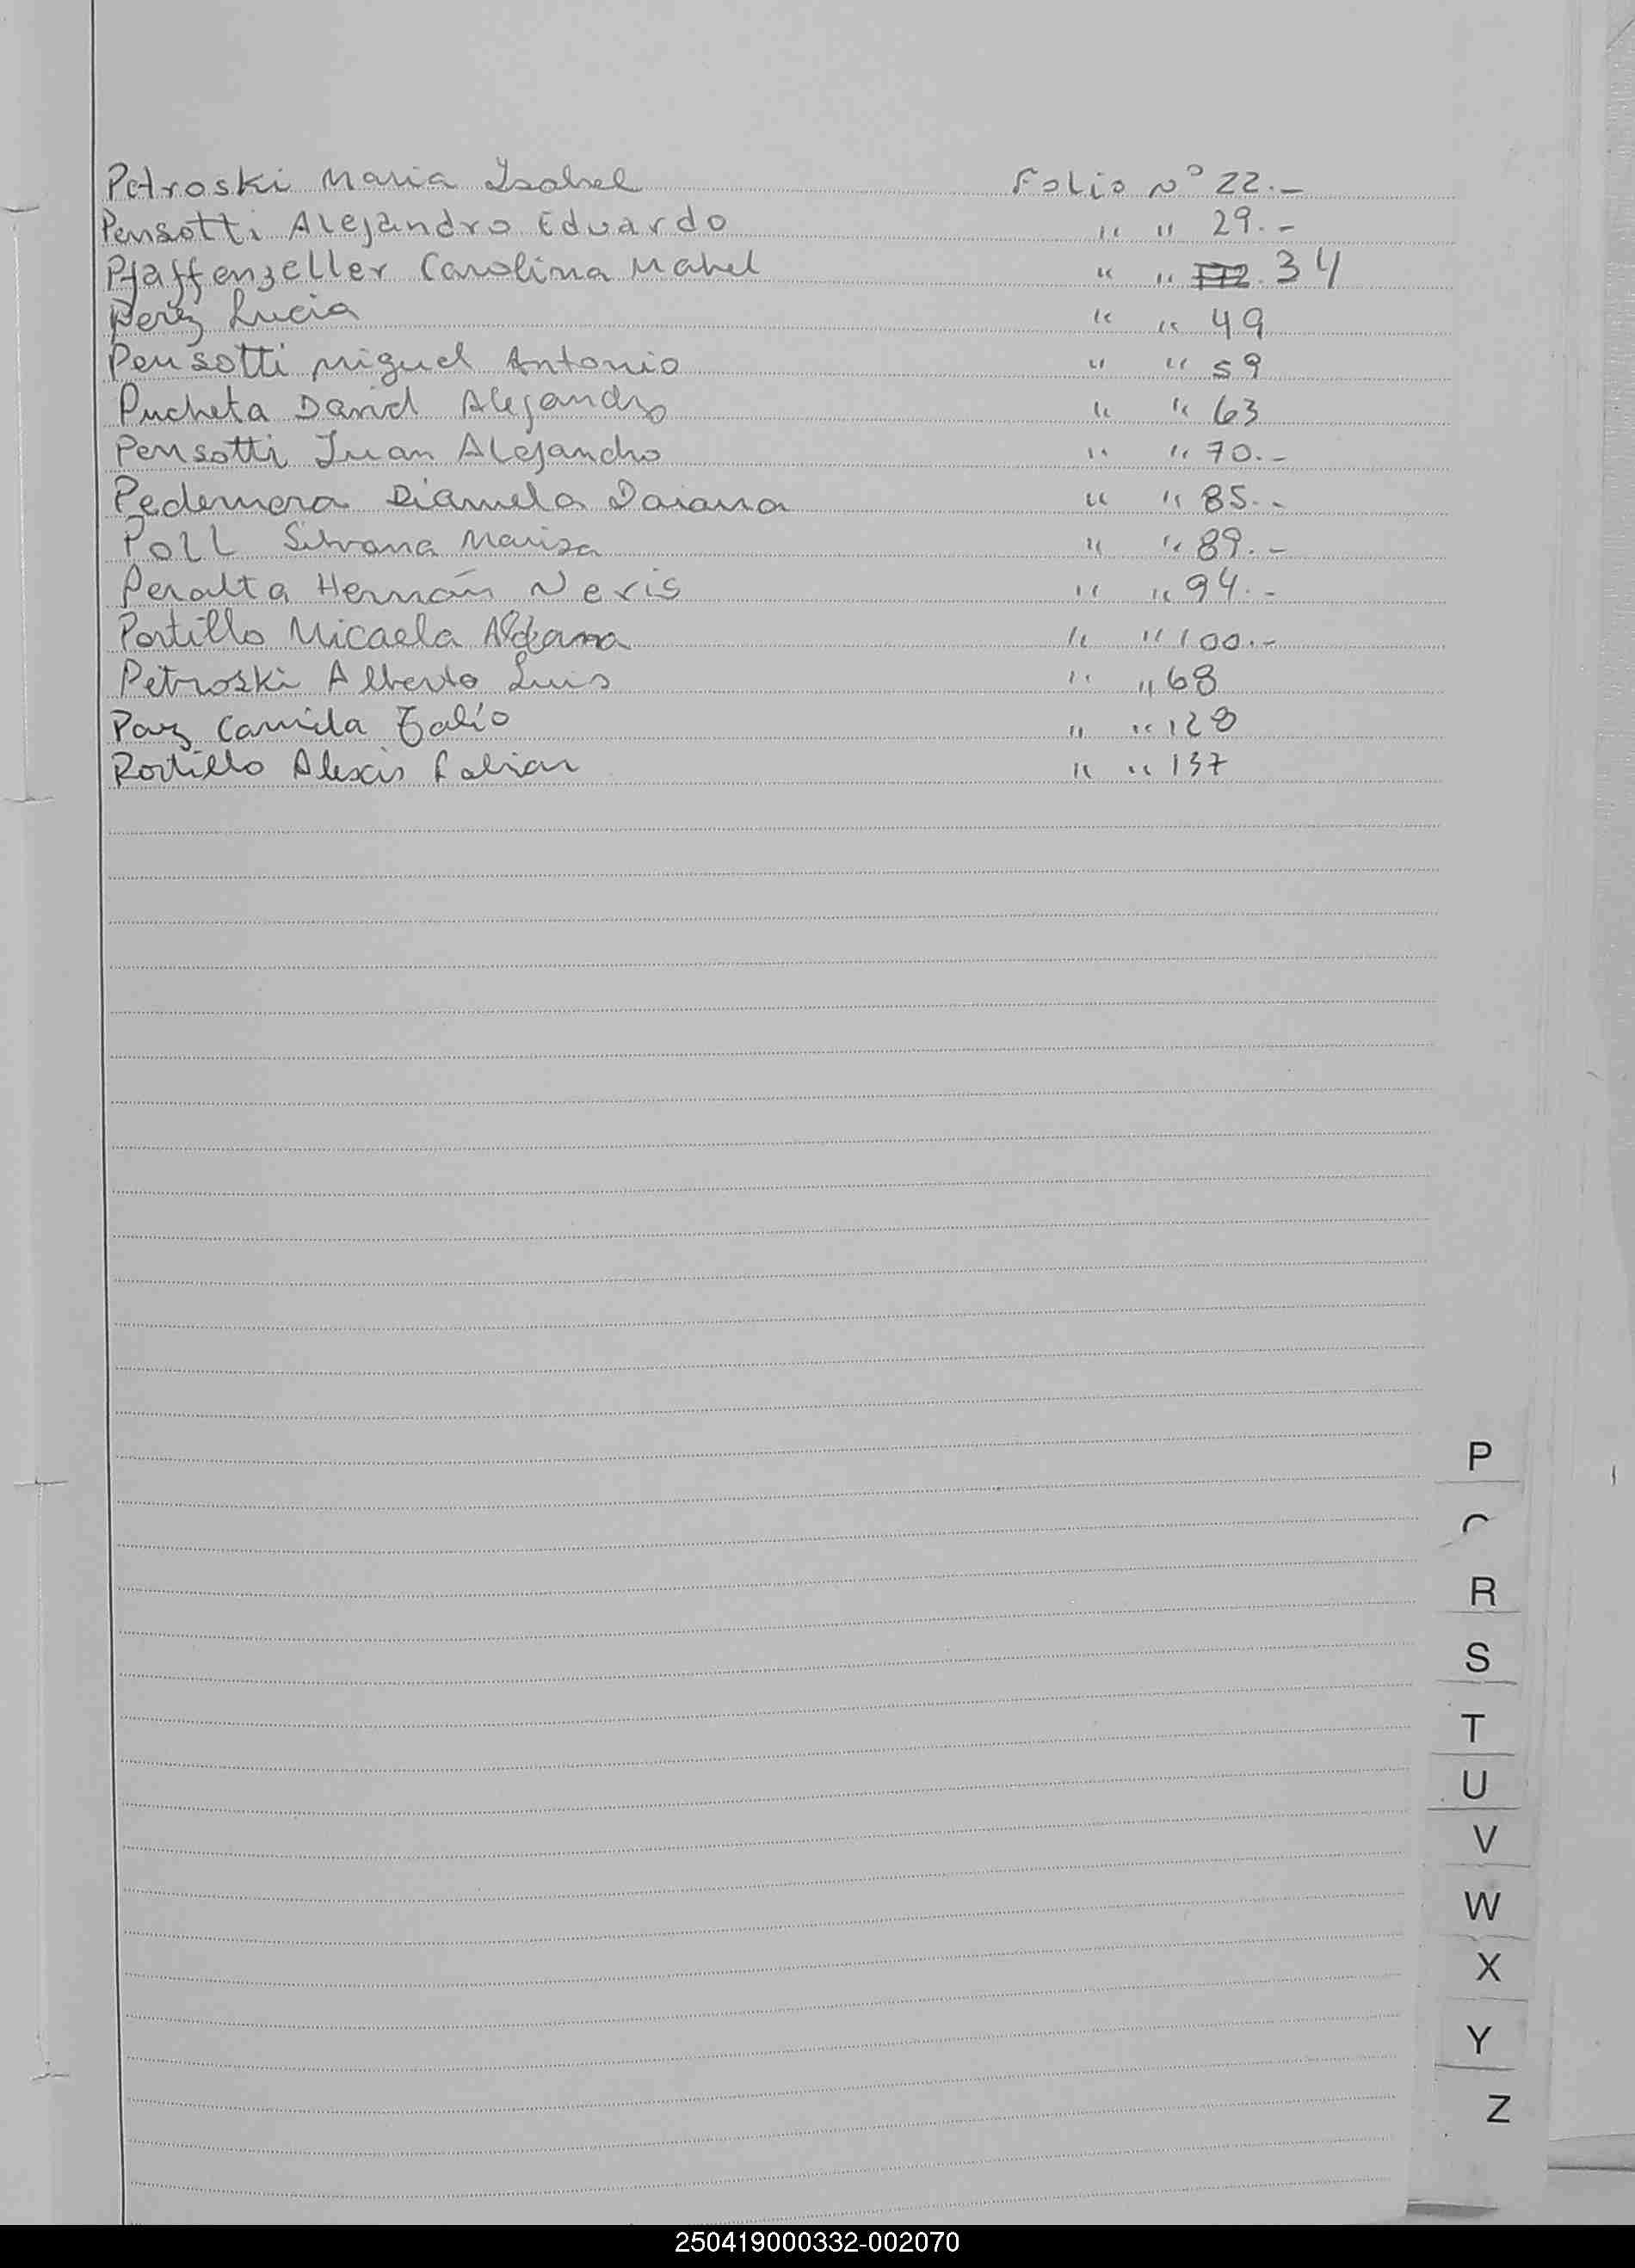 Petroski Maria Isabel Folio Nº 22.-
Pensotti Alejandro Eduardo " " 29.-
Pfaffenzeller Carolina Mabel " " 34
Perez Lucia " " 49
Pensotti Miguel Antonio " " 59
Pucheta David Alejandro " " 63
Pensotti Juan Alejandro " " 70.-
Pedernera Diamela Daiana " " 85.-
Poll Silvana Marisa " " 89.-
Peralta Hernán Neris " " 94.-
Portillo Micaela Aldana " " 100.-
Petroski Alberto Luis " " 68
Paz Camila " " 128
Portillo Alexis Fabian " " 137
P
R
S
T
U
V
W
X
Y
Z
250419000332-002070